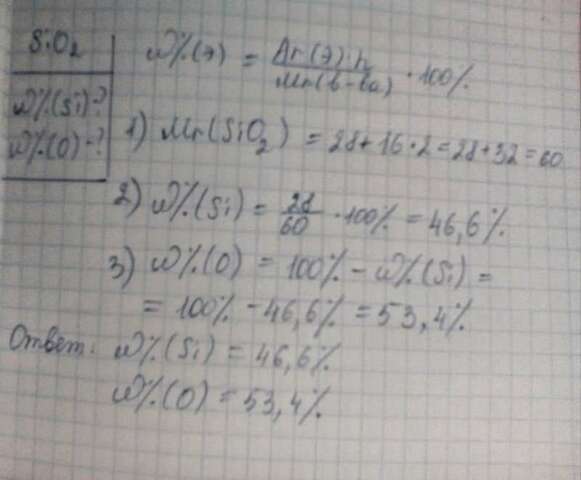 SiO₂
W%(Si)-?
W%(O)-?
W%(э) = Ar(э)·n / Mr(в-ва) · 100%
1) Mr(SiO₂) = 28+16·2=28+32=60
2) W%(Si) = 28/60 · 100% = 46,6%
3) W%(O) = 100% - W%(Si) =
= 100% - 46,6% = 53,4%
Ответ: W%(Si) = 46,6%
W%(O) = 53,4%